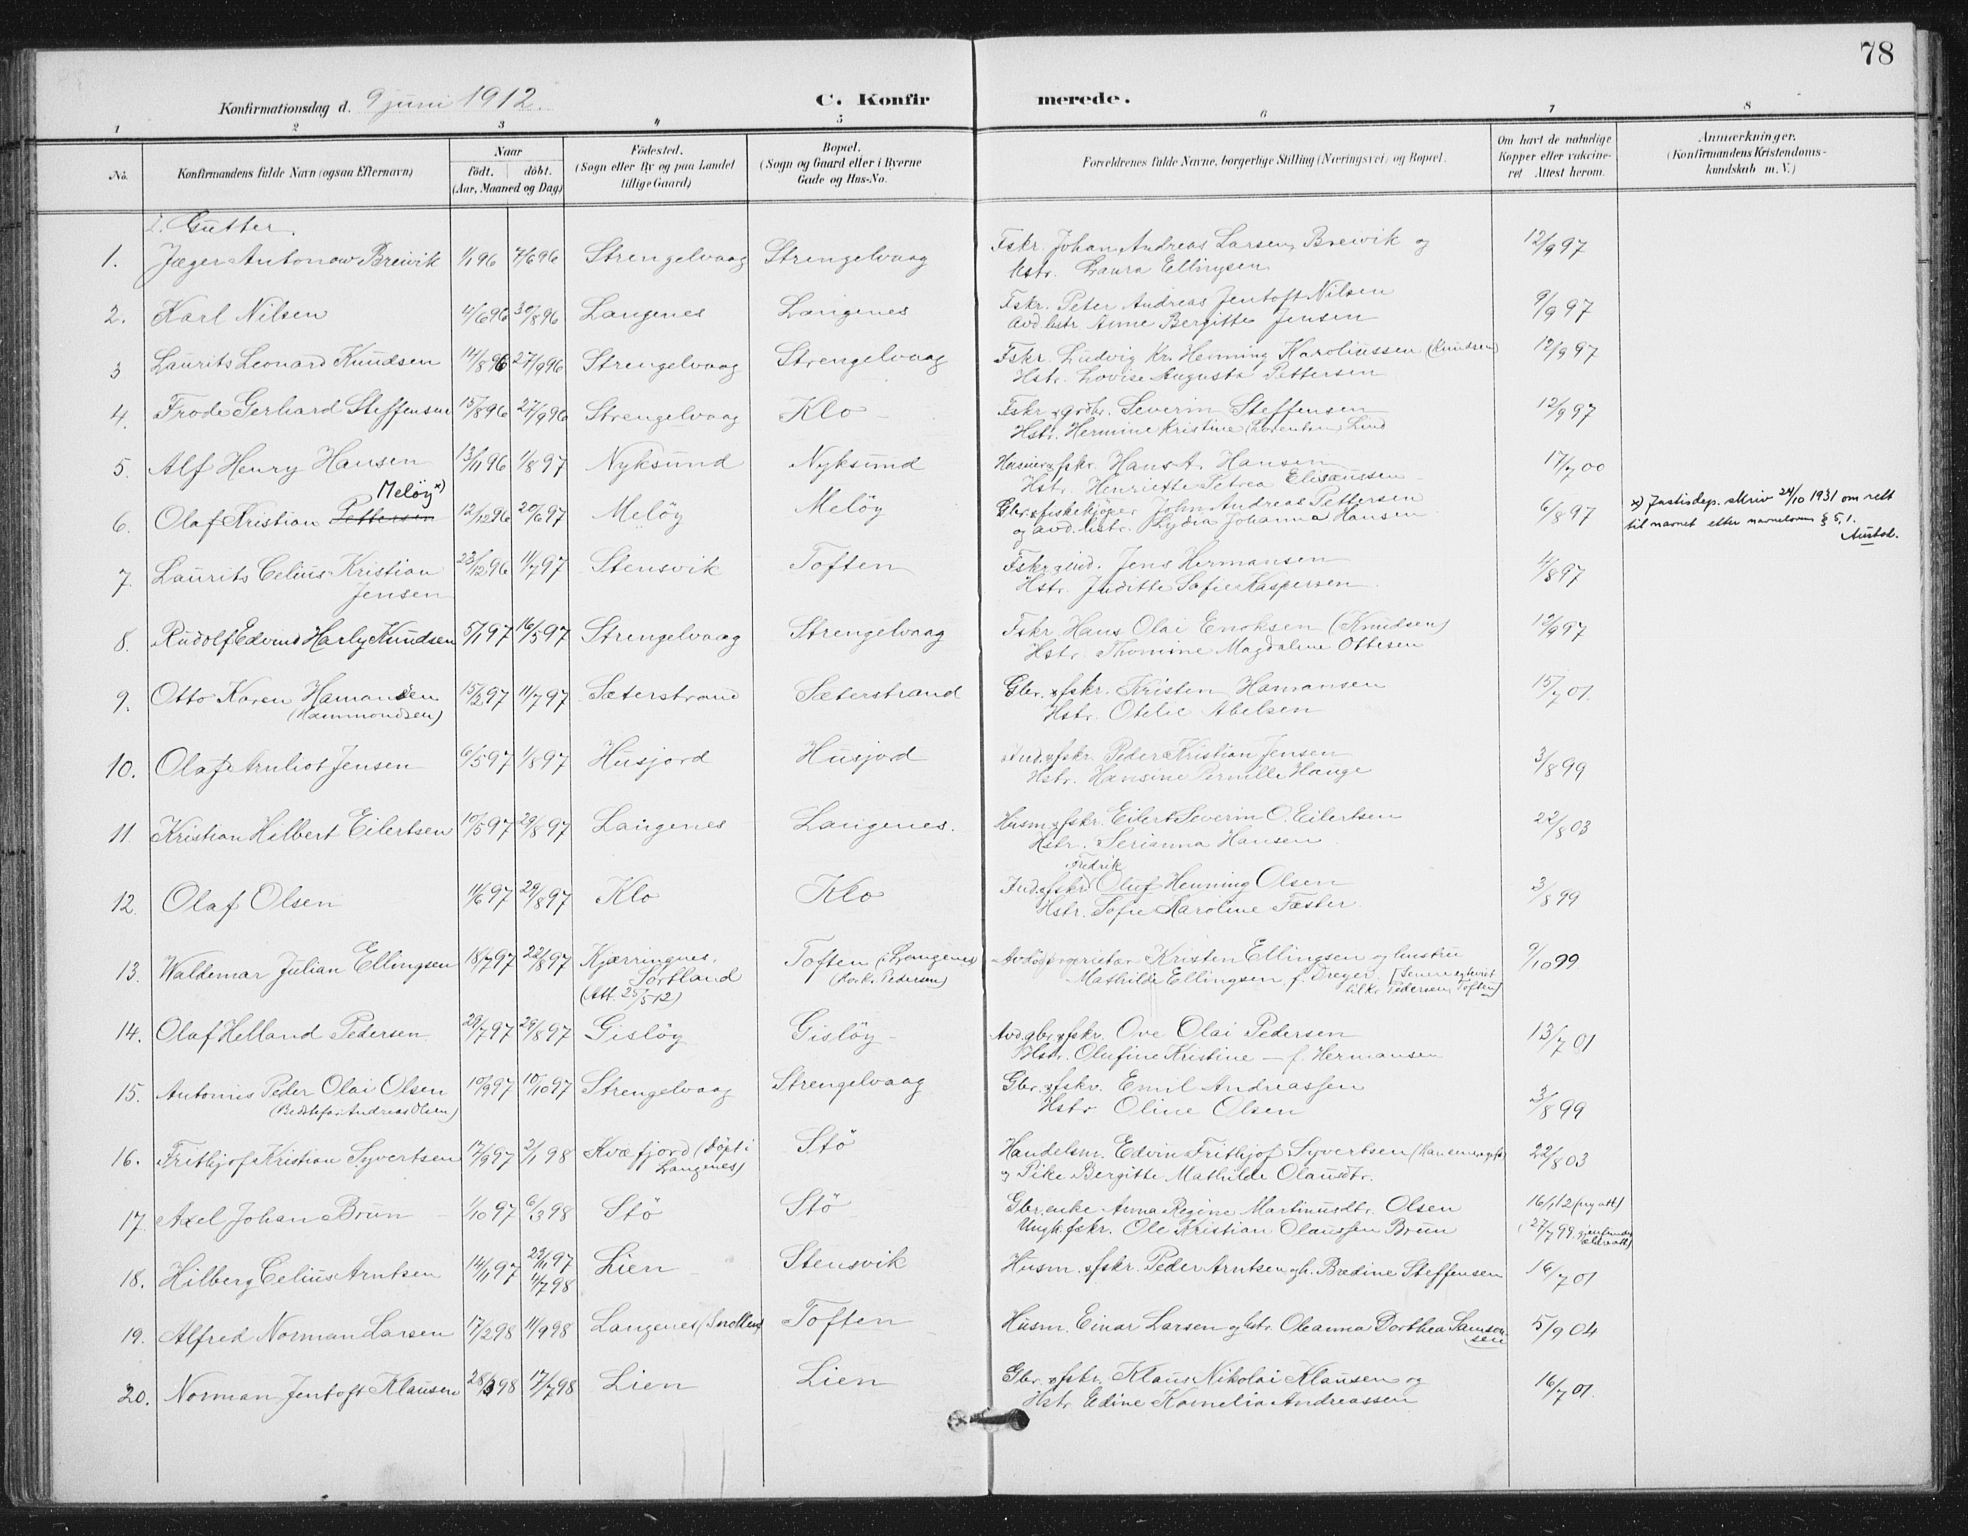 78
Konfirmationsdag d. 9 juni 1912.
C. Konfirmerede.
1 2 3 4 5 6 7 8
No. Konfirmandens fulde Navn (ogsaa Efternavn) Naar födt. döbt. (Aar, Maaned og Dag) Födested. (Sogn eller By og paa Landet tillige Gaard) Bopæl. (Sogn og Gaard eller i Byerne Gade og Hus-No. Forældrenes fulde Navne, borgerlige Stilling (Næringsvei) og Bopæl. Om havt de naturlige Kopper eller vakcineret Attest herom. Anmærkninger. (Konfirmandens Kristendomskundskab m. V.)
Gutter.
1. Jæger Antonow Breivik 1/1 96 7/6 96 Strengelvaag Strengelvaag Fskr. Johan Andreas Larsen Brewik og 12/9 97
Hstr. Laura Ellingsen
2. Karl Nilsen 4/6 96 30/8 96 Langenes Langenes Fskr. Peter Andreas Jentoft Nilsen 9/9 97
Avd. hstr. Anne Bergitte Jensen
3 Laurits Leonard Knudsen 14/8 96 27/9 96 Strengelvaag Strengelvaag Fskr. Ludvig Kr. Henning Karoliussen (Knudsen) 12/9 97
Hstr. Lovise Augusta Pettersen
4. Frode Gerhard Steffensen 15/8 96 27/9 96 Strengelvaag Klo Fskr. & grdbr. Severin Steffensen 12/9 97
Hstr. Hermine Kristine Lind
5. Alf Henry Hansen 13/11 96 1/8 97 Nyksund Nyksund fskr. Hans A. Hansen 17/7 00
Hstr. Henriette Petrea Eliseussen
Meløy x)
6. Olaf Kristian Pettersen 12/12 96 20/6 97 Meløy Meløy Gbr. & fiskekjøper John Andreas Pettersen 6/8 97 x) Justisdep. skriv 24/10 1931 om rett
og avd. hstr. Lydia Johanna Hansen til navnet etter navneloven § 5, 1.
Austad.
7. Laurits Celius Kristian 23/12 96 11/7 97 Stensvik Toften Fskr. Jens Hermansen 4/8 97
Jensen Hstr. Juditte Sofie Kaspersen
8. Rudolf Edvind Harly Knudsen 5/1 97 16/5 97 Strengelvaag Strengelvaag Fskr. Hans Olai Enoksen (Knudsen) 12/9 97
Hstr. Thomine Magdaline Ottesen
9. Otto Karen Hamansen 15/2 97 11/7 97 Sæterstrand Sæterstrand Gbr. & fskr. Kristen Hamansen 15/7 01.
(Hammondsen) Hstr. Otelie Abelsen
10. Olaf Arnhot Jensen 6/5 97 1/8 97 Husjord Husjord Ind. & fskr. Peder Kristian Jensen 3/8 99
Hstr. Hansine Pernille Hauge
11. Kristian Hilbert Eilertsen 10/5 97 29/8 97 Langenes Langenes. Husm. & fskr. Eilert Severin O. Eilertsen 22/8 03
Hstr. Serianna Hansen
Fredrik
12. Olaf Olsen 11/6 97 29/8 97 Klo Klo Ind. & fskr. Oluf Henning Olsen 3/8 99
Hstr. Sofie Karoline Fæster.
13. Waldemar Julian Ellingsen 18/7 97 22/8 97 Kjærringnes, Toften (Langenes) Avdød proprietær Kristen Ellingsen og hustru 9/10 99
Sortland Pedersen) Mathilde Ellingsen f. Dreyer.
(Att. 25/5 12) Pedersen, Toften)
14. Olaf Helland Pedersen 29/7 97 29/8 97 Gisløy Gisløy Avd. gbr. & fskr. Ove Olai Pedersen 13/7 01
Hstr. Olufine Kristine — f. Hermansen
15. Antonius Peder Olai Olsen 10/9 97 10/10 97 Strengelvaag Strengelvaag Gbr. & fskr. Emil Andreassen 3/8 99
(Bedstefar Andreas Olsen) Hstr. Oline Olsen
16. Frithjof Kristian Syvertsen 17/9 97 2/1 98 Kvæfjord (Døpt i Stö Handelsm. Edvin Frithjof Syvertsen 22/8 03
Langenes) og Pike Bergitte Mathilde Olausdtr.
17. Axel Johan Brun 1/10 97 6/3 98 Stö Stö Gbr. enke Anna Regine Martinusdtr. Olsen 16/1 12 (ny att)
Ungk. fskr. Ole Kristian Olaussen Brun (27/7 99
18. Hilberg Celius Arntsen 14/11 97 29/11 97 Lien Stensvik Husm. & fskr. Peder Arntsen og h. Brædine Steffensen 16/7 01
4/7 98
19. Alfred Norman Larsen 17/2 98 11/9 98 Langenes Toften Husm. Einar Larsen og hstr. Oleanna Dorthea Samson- 5/9 04
sen
20. Norman Jentoft Klausen 28/3 98 17/7 98 Lien Lien Gbr. & fskr. Klaus Nikolai Klausen og 16/7 01.
Hstr. Edine Kornelia Andreassen